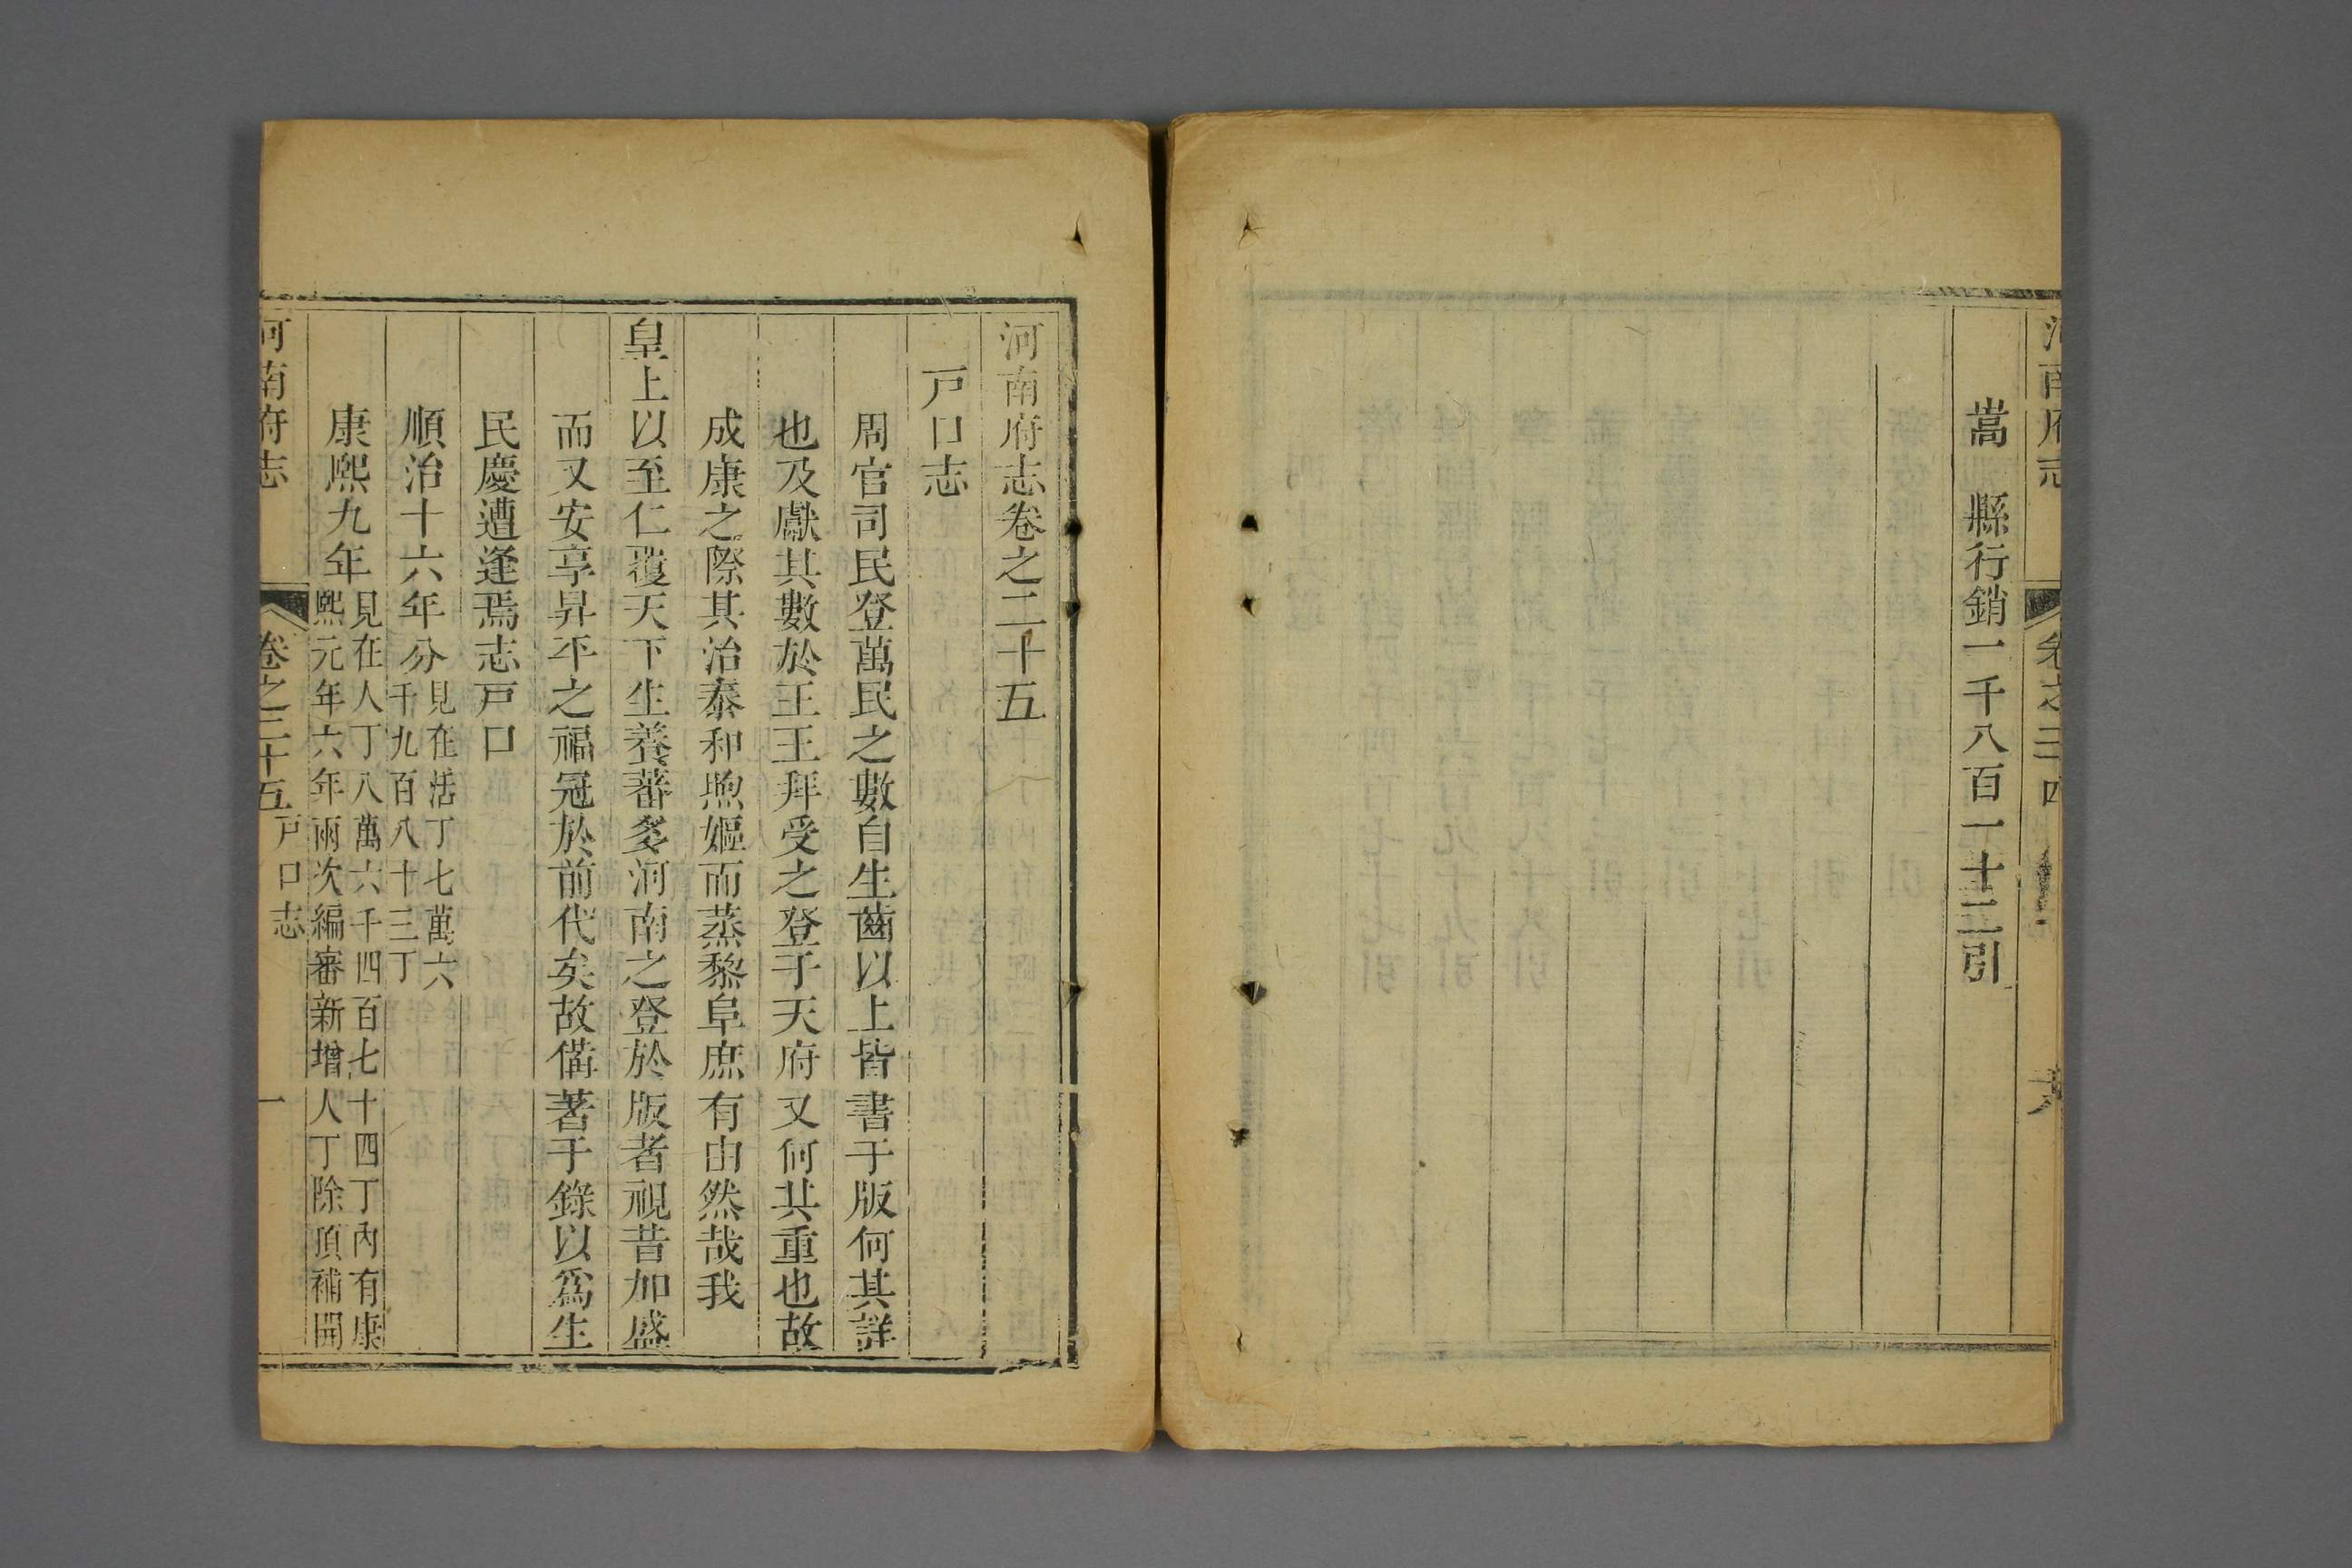 嵩　縣行銷一千八百一十二引
河南府志卷之二十五
戸口志
周官司民登萬民之數自生齒以上皆書于版何其詳
也及獻其數於王王拜受之登于天府又何其重也故
成康之際其治泰和煦嫗而蒸黎阜庶有由然哉我
皇上以至仁覆天下生養蕃多河南之登於版者視昔加盛
而又安享昇平之福冠於前代矣故備著于錄以爲生
民慶遭逢焉志戸口
順治十六年分見在活丁七萬六
千九百八十三丁
康熙九年見在人丁八萬六千四百七十四丁內有康
熙元年六年兩次編審新增人丁除頂補開
河南府志　卷之二十五　戸口志　一